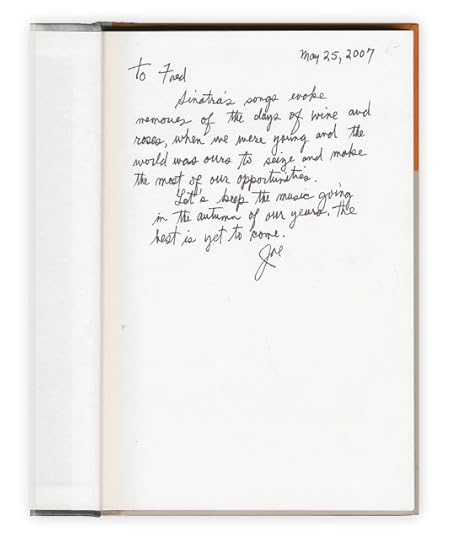 May 25, 2007
To Fred
Sinatra's songs evoke
memories of the days of wine and
roses, when we were young and the
world was ours to seize and make
the most of our opportunities.
Let's keep the music going
in the autumn of our years. The
best is yet to come.
Joe